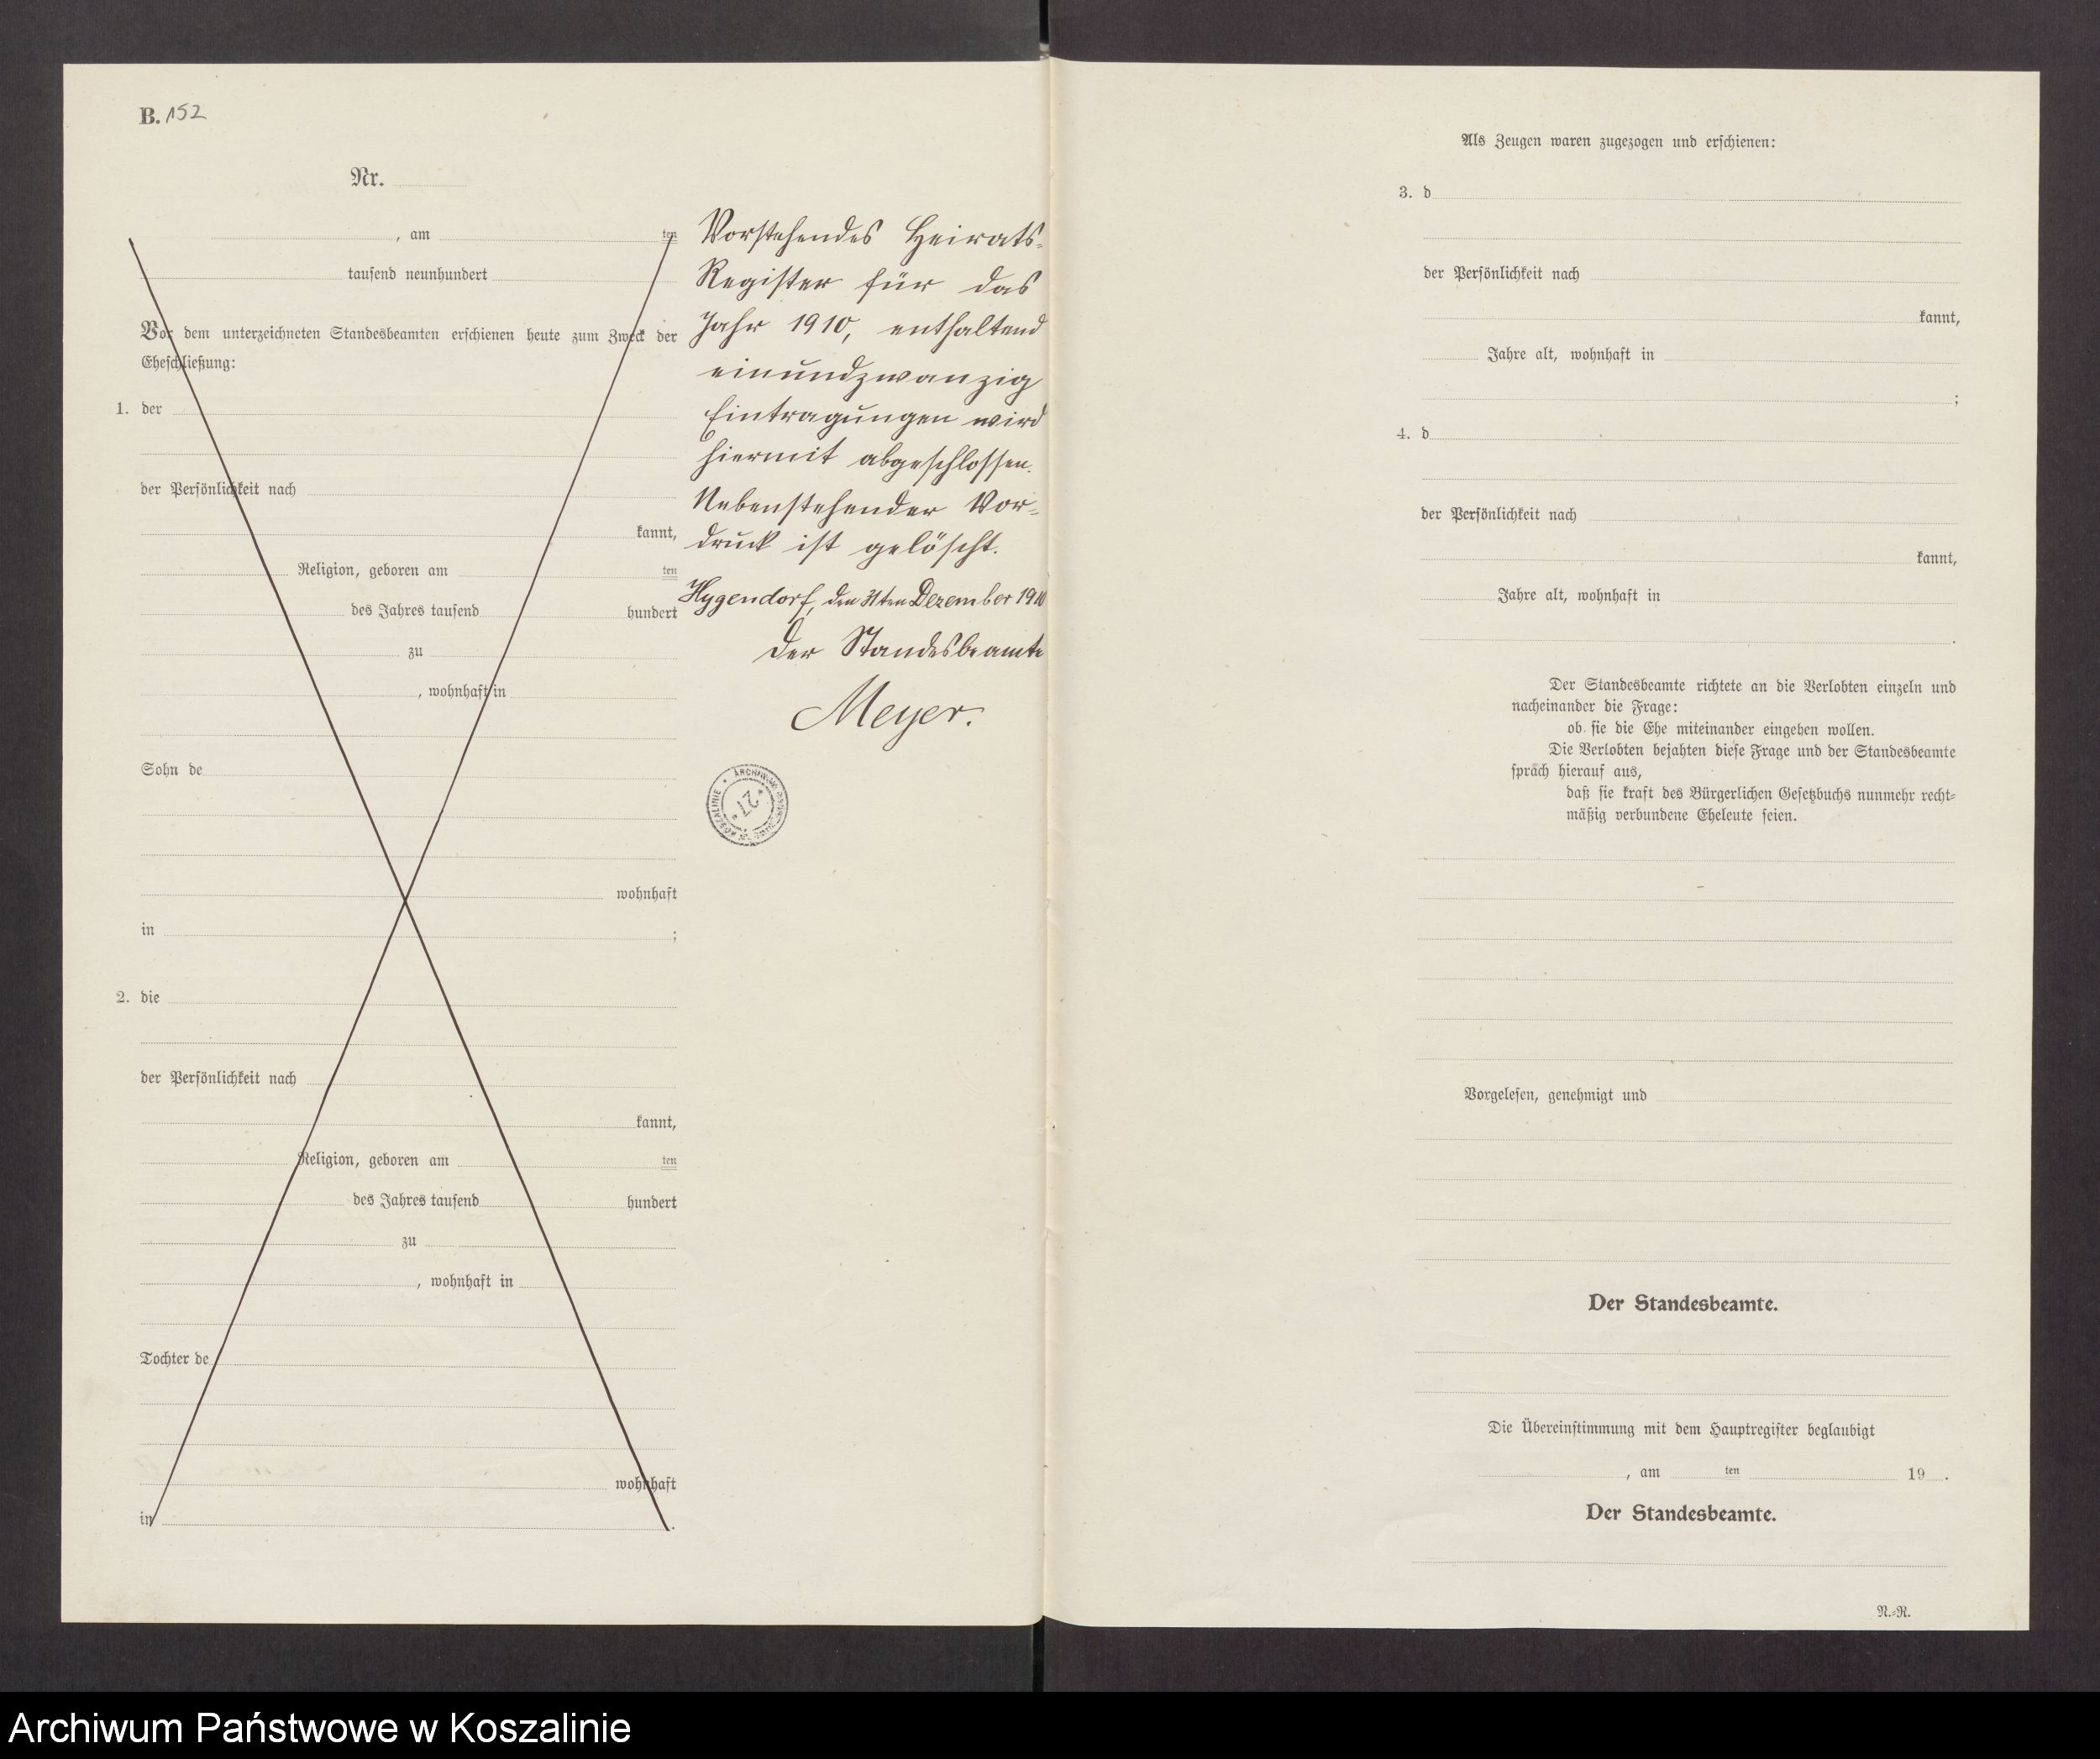 B. 152
Nr.
, am ten
tausend neunhundert
Vor dem unterzeichneten Standesbeamten erschienen heute zum Zweck der
Eheschließung:
1. der
der Persönlichkeit nach
kannt,
Religion, geboren am ten
des Jahres tausend hundert
zu
, wohnhaft in
Sohn de
wohnhaft
in ;
2. die
der Persönlichkeit nach
kannt,
Religion, geboren am ten
des Jahres tausend hundert
zu
, wohnhaft in
Tochter de
wohnhaft
in .
Vorstehendes Heirats-
Register für das
Jahr 1910, enthaltend
einundzwanzig
Eintragungen wird
hiermit abgeschlossen.
Nebenstehender Vor-
druck ist gelöscht.
Hygendorf, den 31ten Dezember 1910
Der Standesbeamte
Meyer.
27
Als Zeugen waren zugezogen und erschienen:
3. d
der Persönlichkeit nach
kannt,
Jahre alt, wohnhaft in
;
4. d
der Persönlichkeit nach
kannt,
Jahre alt, wohnhaft in
.
Der Standesbeamte richtete an die Verlobten einzeln und
nacheinander die Frage:
ob sie die Ehe miteinander eingehen wollen.
Die Verlobten bejahten diese Frage und der Standesbeamte
sprach hierauf aus,
daß sie kraft des Bürgerlichen Gesetzbuchs nunmehr recht-
mäßig verbundene Eheleute seien.
Vorgelesen, genehmigt und
Der Standesbeamte.
Die Übereinstimmung mit dem Hauptregister beglaubigt
, am ten 19 .
Der Standesbeamte.
N.-R.
Archiwum Państwowe w Koszalinie